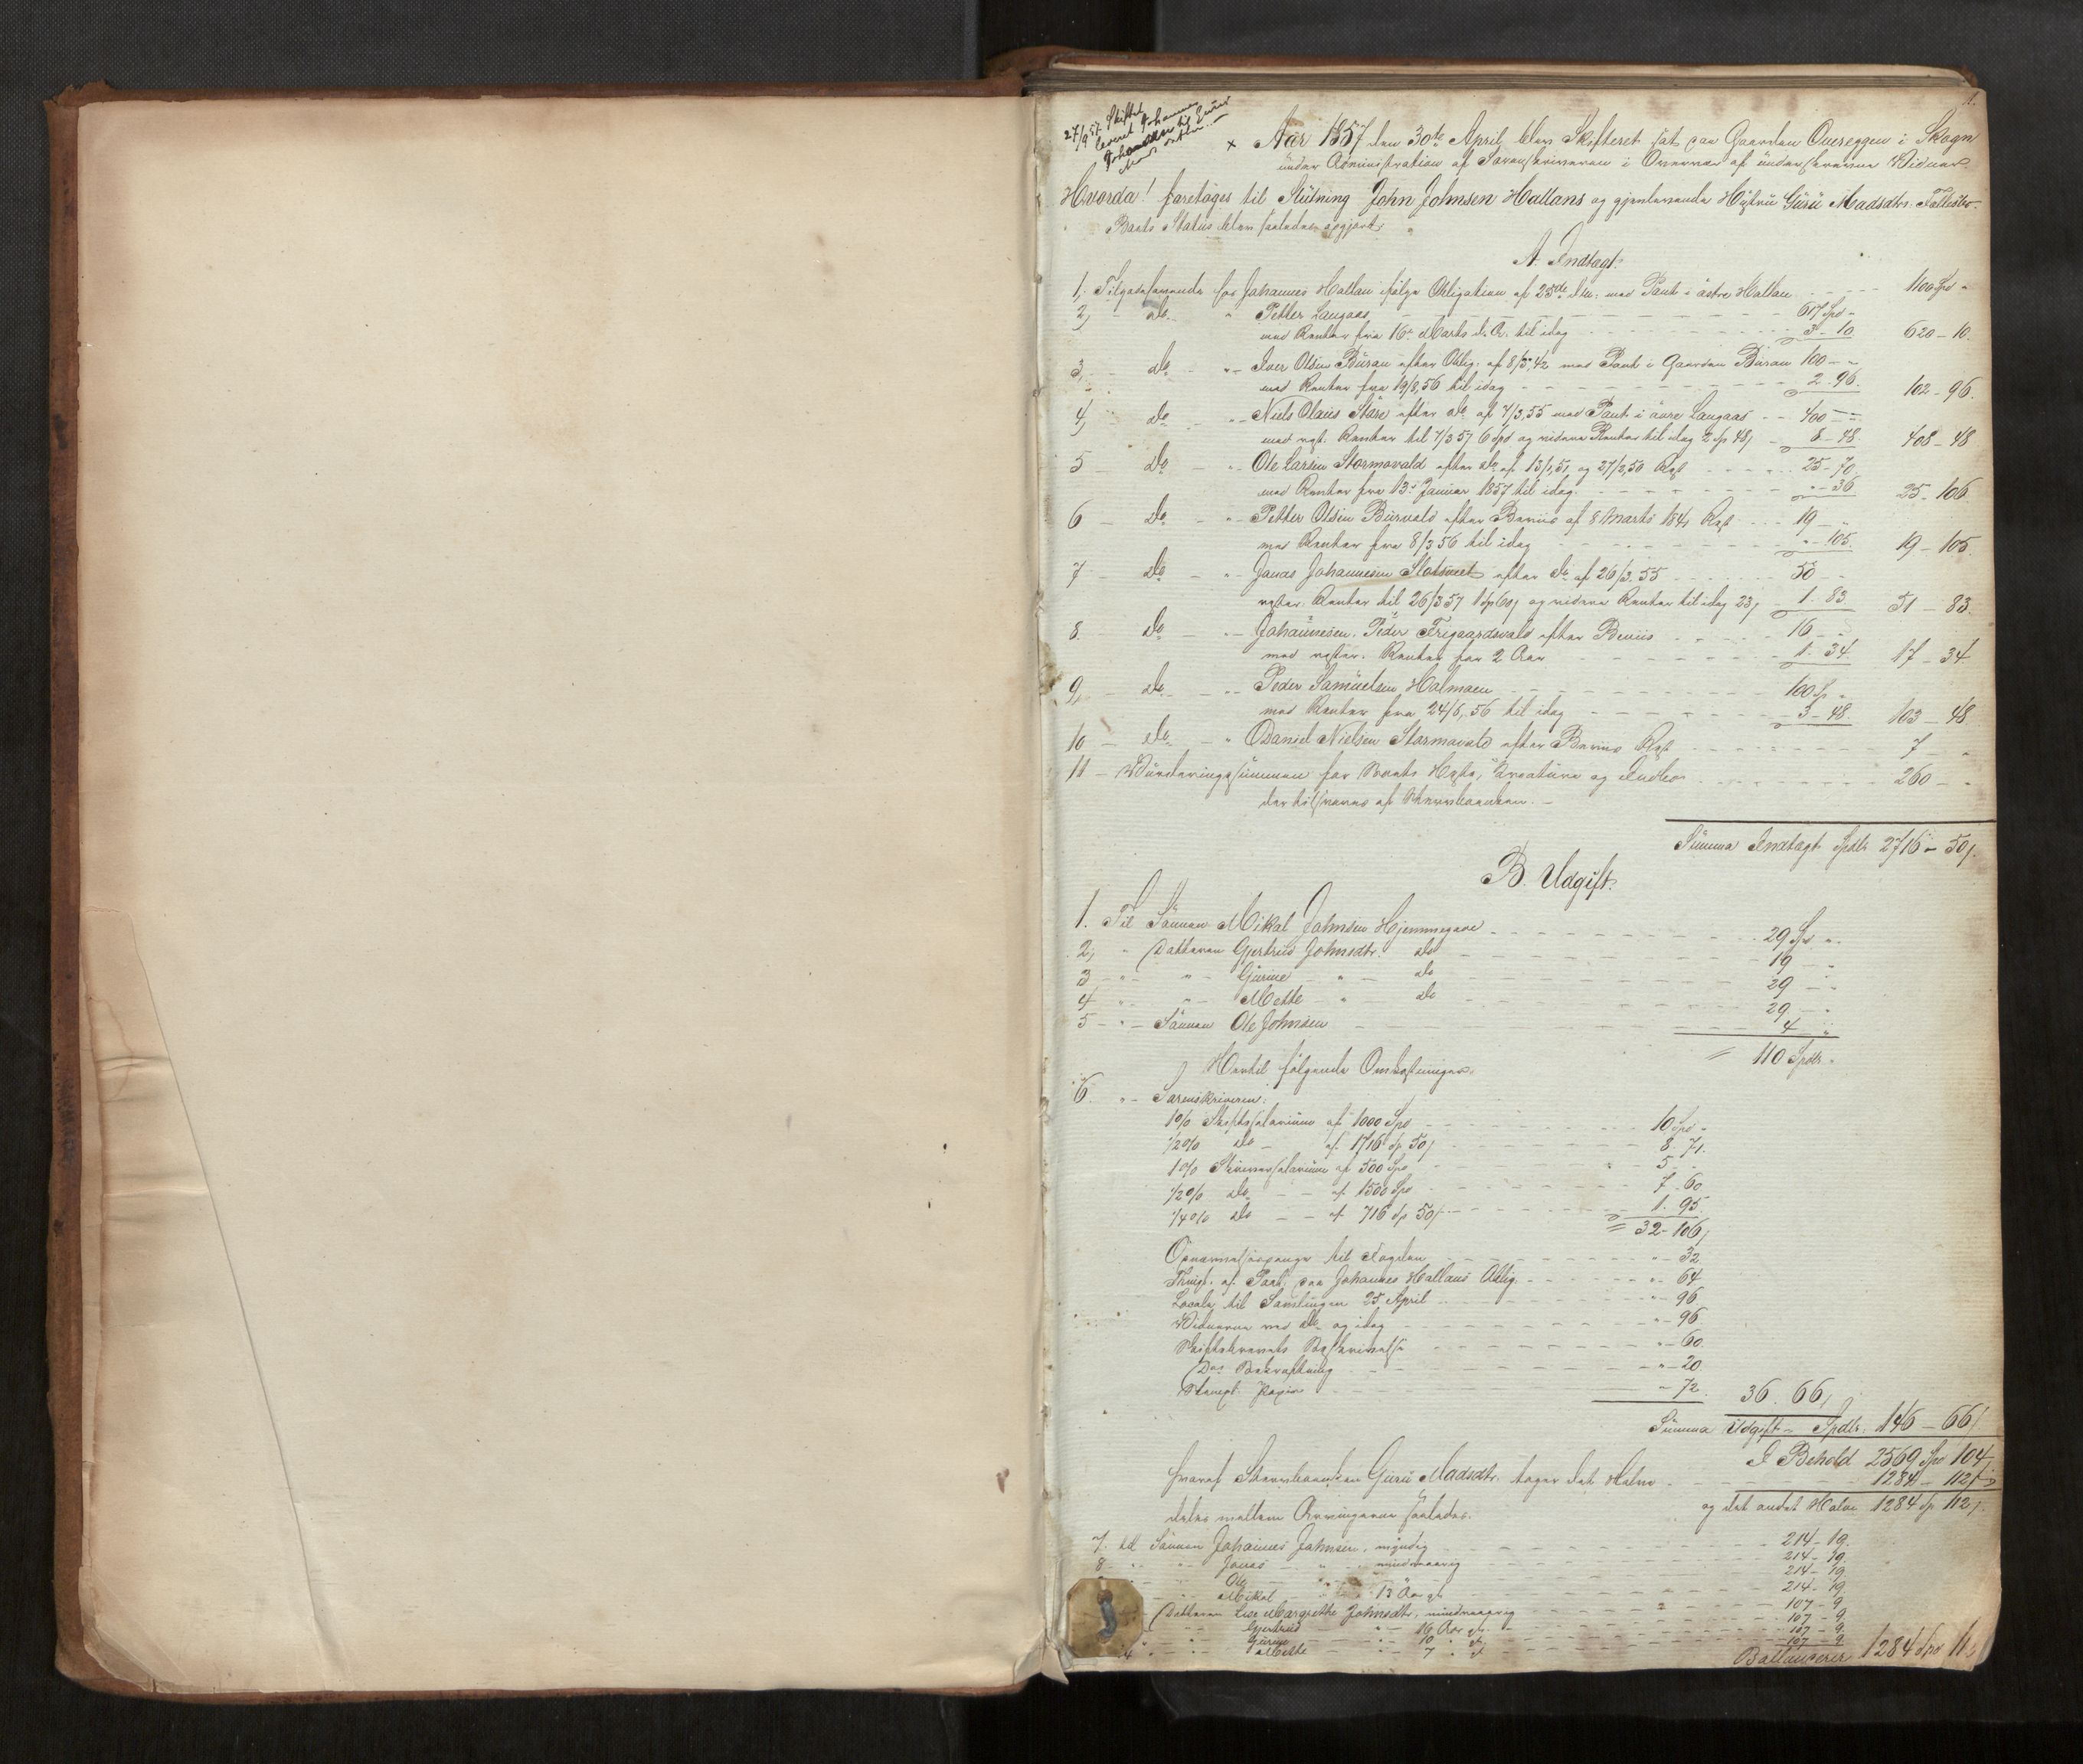 1.
27/9 57 Skiftet
leveret Johannes
Johnsen til
× Aar 1857 den 30te April blev Skifteret sat paa Gaarden Overeggen i Skogn
under Administration af Sorenskriveren i Overvær af underskrevne Vidner.
Hvorda! foretoges til Slutning John Johnsen Hallans og gjenlevende Hustru Guru Madsdtr. Fællesbo.
Boets Status blev saaledes opgjort:
A. Indtægt.
1, Tilgodehavende hos Johannes Hallan ifølge Obligation af 25de dm: med Pant i østre Hallan - - - 1100 Spd "
2, - do. " Petter Laugaas - - - 617 Spd "
med Renter fra 16de Marts d. A. til idag - - - 3 - 10. 620 - 10.
3, - do - "- Iver Olsen Buran efter Oblig. af 8/5 42 med Pant i Gaarden Buran 100 - "
med Renter fra 19/8 56 til idag - - - 2 - 96. 102 - 96.
4, do - "- Niels Olaus Stare efter do af 7/3 55 med Pant i øvre Laugaas - - 400 - "
med rest. Renter til 7/3 57 6 Spd og videre Renter til idag 2 Sp 48 - 8 - 48 408 - 48
5 - do - "- Ole Larsen Stormovald efter do af 13/1 51 og 27/2 50 Rest - - - 25 - 70
med Renter fra 13de Januar 1857 til idag - - - " - 36 25 - 106
6 - do - "- Petter Olsen Burvald efter Beviis af 8 Marts 184 Rest - - - 19 - "
med Renter fra 8/3 56 til idag - - - " - 105. 19 - 105.
7 - do - "- Jonas Johannesen Slotsvet efter do af 26/3 55 - - - 50 -
rester. Renter til 26/3 57 1 Sp 60 og videre Renter til idag 23 - 1. 83 51 - 83.
8. do - "- Johannesen. Peder Trigaardsvald efter Beviis - - - 16 - "
med rester. Renter for 2 Aar - - - 1. 34 17 - 34
9, - do - "- Peder Samuelsen Halmoen - - - 100 Sp "
med Renter fra 24/8 56 til idag - - - 3 - 48. 103 - 48
10 - do - " Daniel Nielsen Stormovald efter Beviis Rest - - - 7 - "
11 - Vurderingssummen for Boets Heste, Creature og Indbo - - - 260 - "
der tilsvares af Stervboenken. -
Summa Indtægt Spdlr 2716 - 50
B. Udgift.
1. Til Sønnen Mikal Johnsen Hjemmegave - - - 29 Spd "
2, " Datteren Gjertrud Johnsdtr. do - - - 19 - "
3 - " " - Gurine - " - do - - - 29 - "
4 " " - Mette - " do - - - 29 - "
5 - " - Sønnen Ole Johnsen - - - 4 "
= 110 Spdlr "
Hertil følgende Omkostninger.
6. " - Sorenskriveren:
1% Skiftesalarium af 1000 Spd - - - 10 Spd "
1/2% do - af 1716 Sp 50 - - - 8. 71.
1% Skriversalarium af 500 Spd - - - 5. "
1/2% do - - af 1500 Spd - - - 7. 60
1/4% do - - af 716 Sp 50 - - - 1. 95
= 32 - 106
Opnævnelsespenge til Fogden - - - " - 32
Thingl. af Pant. paa Johannes Hallans Oblig. - - - " - 64
Locale til Samlingen 25 April - - - " - 96
Vidnerne ved do og idag - - - " - 96
Skiftebrevets Beskrivelse - - - " - 60.
Dets Bekræftning - - - " - 20
Stempl. Papir - - - " - 72. 36. 66
Summa Udgift - Spdlr. 146 - 66
I Behold 2569 Spd 104
hvoraf Stervboenken Guru Madsdtr. tager det Halve - 1284 - 112
og det andet Halve 1284 Sp 112
deles mellem Arvingerne saaledes.
7. til Sønnen Johannes Johnsen, myndig - - - 214 - 19.
8 " " - Jonas - " - mindreaarig - - - 214 - 19
Ole " - - - 214 - 19
Mikal - " - 13 Aar gl. - - - 214 - 19
Datteren Lise Margrethe Johnsdtr. mindreaarig - - - 107 - 9
" Gjertrud " - 16 Aar gl. - - - 107 - 9
" " - Gurine - " - 10 " gl. - - - 107 - 9
4 " - " - Mette - " - 7 " gl. - - - 107 - 9
Ballancerer 1284 Spd 11